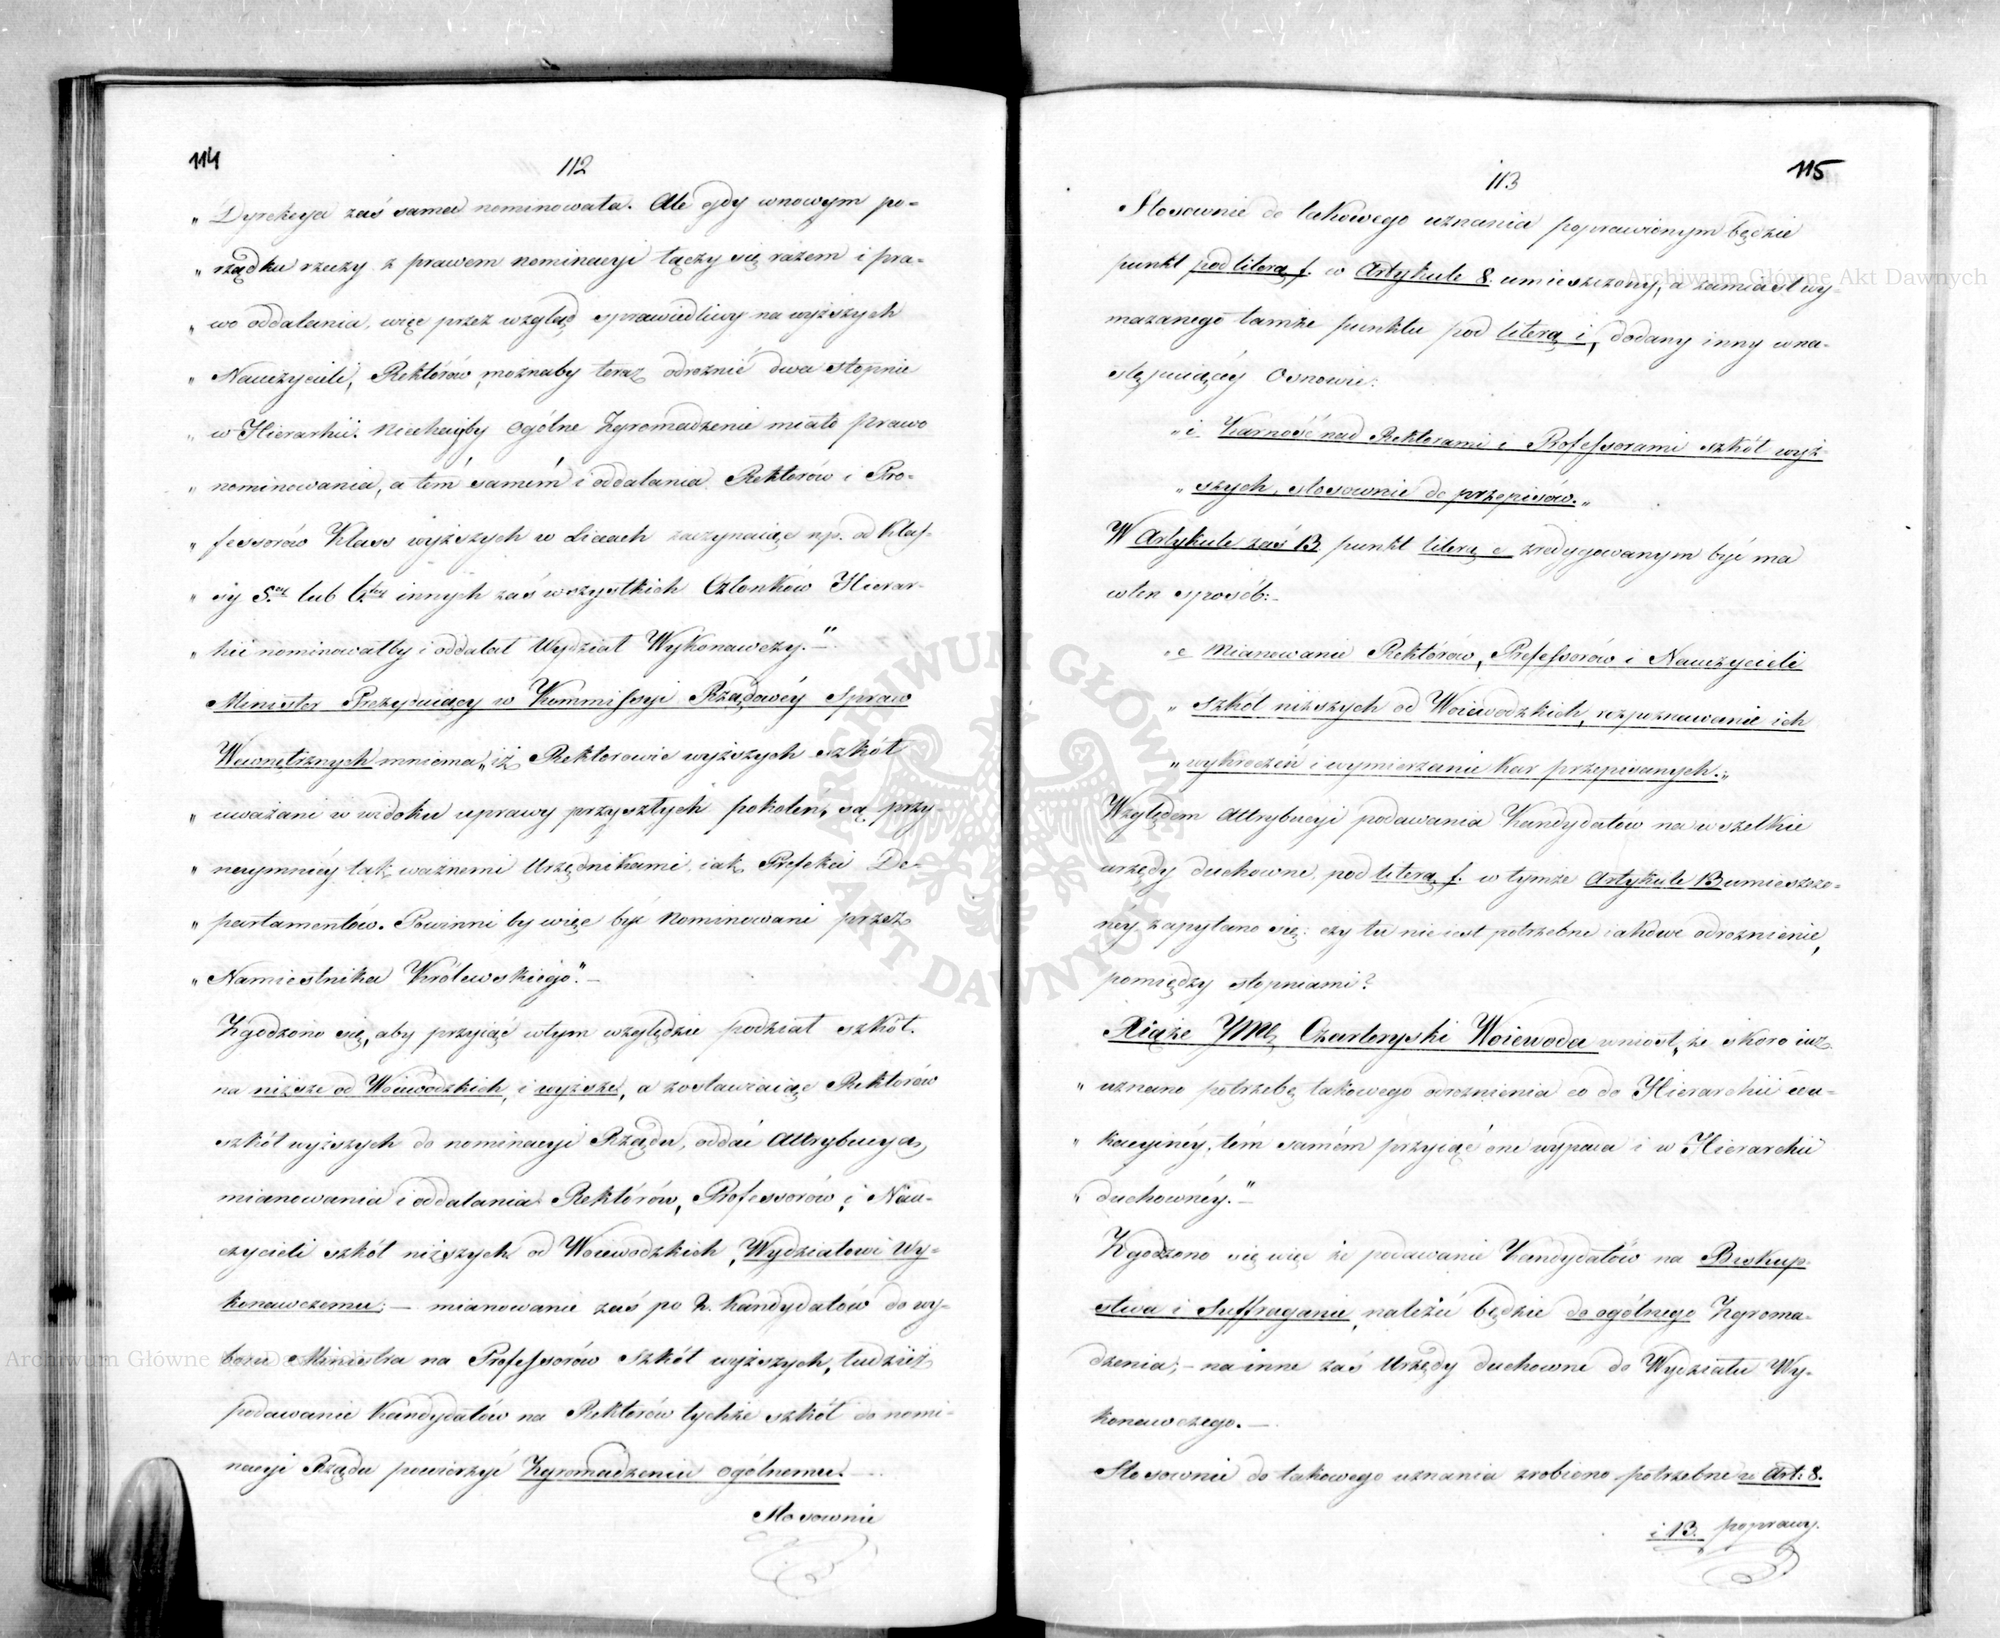 114
112
„ Dyrekcya zaś sama nominowała. Ale gdy wnowym po-
„ rządku rzeczy z prawem nominacyi łączy się razem i pra-
„ wo oddalania, więc przez wzgląd sprawiedliwy na wyższych
„ Nauczycieli, Rektórów, możnaby teraz odroznić dwa stopnie
„ w Hierarhii. Niechayby Ogólne Zgromadzenie miało prawo
„ nominowania, a tém samém i oddalania Rektorów i Pro-
„ fessorów Klass wyższych w Liceach zaczynaiąc np. od Klas-
„ sy 5.tey lub 6.tey innych zaś wszystkich Członków Hierar-
„ hii nominowałby i oddalał Wydział Wykonawczy.“ —
Minister Prezyduiący w Kommissyi Rządowéy Spraw
Wewnętrznych mniema, „iż Rektorowie wyższych szkół
„ uważani w widoku uprawy przyszłych pokoleń, są przy-
„ naymniéy tak ważnemi Urzędnikami, iak Prefekci De-
„ partamentów. Powinni by więc być Nominowani przez
„ Namiestnika Królewskiego“. —
Zgodzono się, aby przyiąć wtym względzie podział szkół
na niższe od Woiewodzkich, i wyższe, a zostawiaiąc Rektorów
szkół wyższych do nominacyi Rządu, oddać Attrybucyą
mianowania i oddalania Rektórów, Professorów, i Nau-
czycieli szkół niższych od Woiewodzkich, Wydziałowi Wy-
konawczemu; — mianowanie zaś po 2. Kandydatów do wy-
boru Ministra na Professorów Szkół wyższych, tudzież
podawanie Kandydatów na Rektorów tychże szkół do nomi-
nacyi Rządu powierzyć Zgromadzeniu ogólnemu. —
Stosownie
115
113
Stosownie do takowego uznania poprawionym będzie
punkt pod literą f. w Artykule 8. umieszczony, a zamiast wy-
mazanego tamże punktu pod literą i, dodany inny wna-
stępuiącéy Osnowie:
„ i. Karność nad Rektorami i Professorami szkół wyż-
„ szych, stosownie do przepisów. „
W Artykule zaś 13. punkt literą e zredygowanym być ma
wten sposób: —
„ e Mianowanie Rektórów, Professorów i Nauczycieli
„ szkół niższych od Woiewodzkich, rozpoznawanie ich
„ wykroczeń i wymierzanie kar przepisanych. „
Względem Attrybucyi podawania Kandydatów na wszelkie
urzędy duchowne, pod literą f. w tymże Artykule 13 umieszczo-
néy zapytano się: czy tu nie iest potrzebne iakowe odroznienie,
pomiędzy stopniami?
Xiąże JMć Czartoryski Woiewoda wniosł, „że skoro iuż
„ uznano potrzebę takowego odroznienia co do Hierarchii edu-
„ kacyinéy, tém samém przyiąć one wypada i w Hierarchii
„ duchownéy.“ —
Zgodzono się więc że podawanie Kandydatów na Biskup-
stwa i Suffraganie, należéć będzie do ogólnego Zgroma-
dzenia; — na inne zaś Urzędy duchowne do Wydziału Wy-
konawczego. —
Stosownie do takowego uznania zrobiono potrzebne w Art: 8.
i 13. poprawy.
Archiwum Główne Akt Dawnych
Archiwum Główne Akt Dawnych
ARCHIWUM GŁÓWNE AKT DAWNYCH